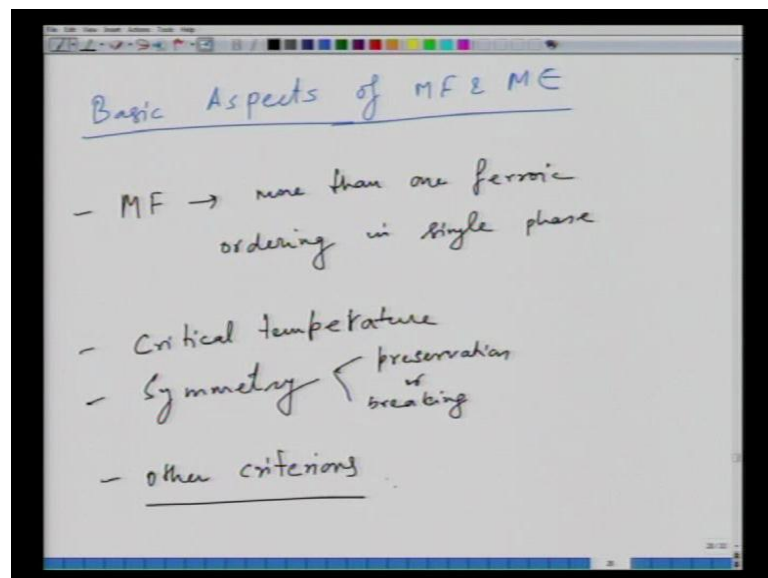 File Edit View Insert Actions Tools Help
Basic Aspects of MF & ME
- MF → more than one ferroic
ordering in single phase
- Critical temperature
- Symmetry < preservation
or
breaking
- other criterions